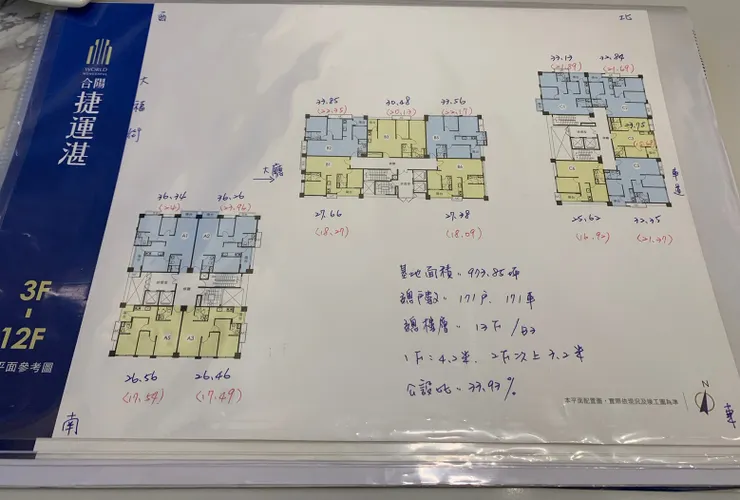 西
北
WORLD
合陽
捷運湛
大福街
3F
-
12F
平面參考圖
33.13 32.84
(21.89) (21.69)
33.85 30.48 33.56
(22.35) (20.13) (22.17)
23.75
大廳
車道
27.66 27.38
(18.27) (18.09)
25.62 32.35
(16.92) (21.37)
36.34 36.26
(24) (23.96)
A1 A2
A5 A3
26.56 26.46
(17.54) (17.49)
基地面積:973.85坪
總戶數:171戶、171車
總樓層:13F/B3
1F:4.2米、2F以上3.2米
公設比:33.93%
本平面配置圖,實際依現況及竣工圖為準
N
南
東